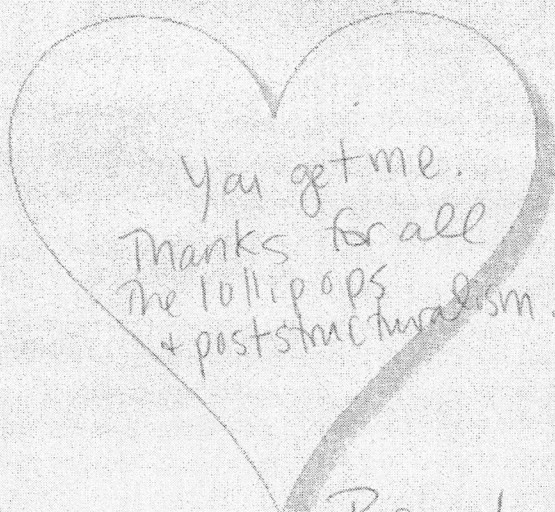 You get me.
Thanks for all
The lollipops
+ poststructuralism.